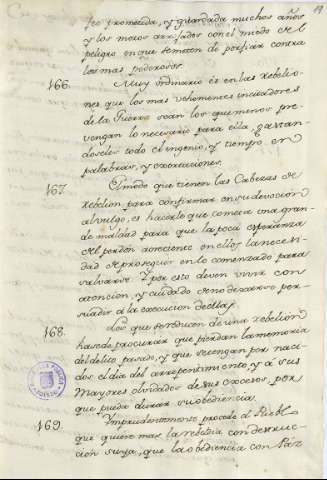 19
feo prometida, y guardada muchos años
y los motos arrisados con el miedo del
peligro en que se meten de porfiar contra
los mas poderosos.
166. Muy ordinario es en las Rebelio-
nes que los mas vehementes incitadores
de la Guerra sean los que menos pre-
vengan lo necesario para ella, gastan-
doseles todo el ingenio, y tiempo en
palabras, y exortaciones.
167. El modo que tienen las Cabezas de
Rebelion para confirmar en su devocion
al vulgo, es hacerle que cometa una gran-
de maldad para que la poca esperanza
del perdon acreciente en ellos la necesi-
dad de proseguir en lo comenzado para
salvarse. Y por esto deven vivir con
atencion, y cuidado de no dexarse per-
suadir a la execucion dellas.
168. Los que se reducen de una Rebelion
hase de procurar que pierdan la memoria
del delito pasado, y que se tengan por naci-
dos el dia del arrepentimiento, y á sus
Mayores olvidados de sus excesos, por
que pueda durar su obediencia.
169. Imprudentemente procede el Pueblo
que quiere mas la rebeldia con destruc-
cion suya, que la obediencia con Paz